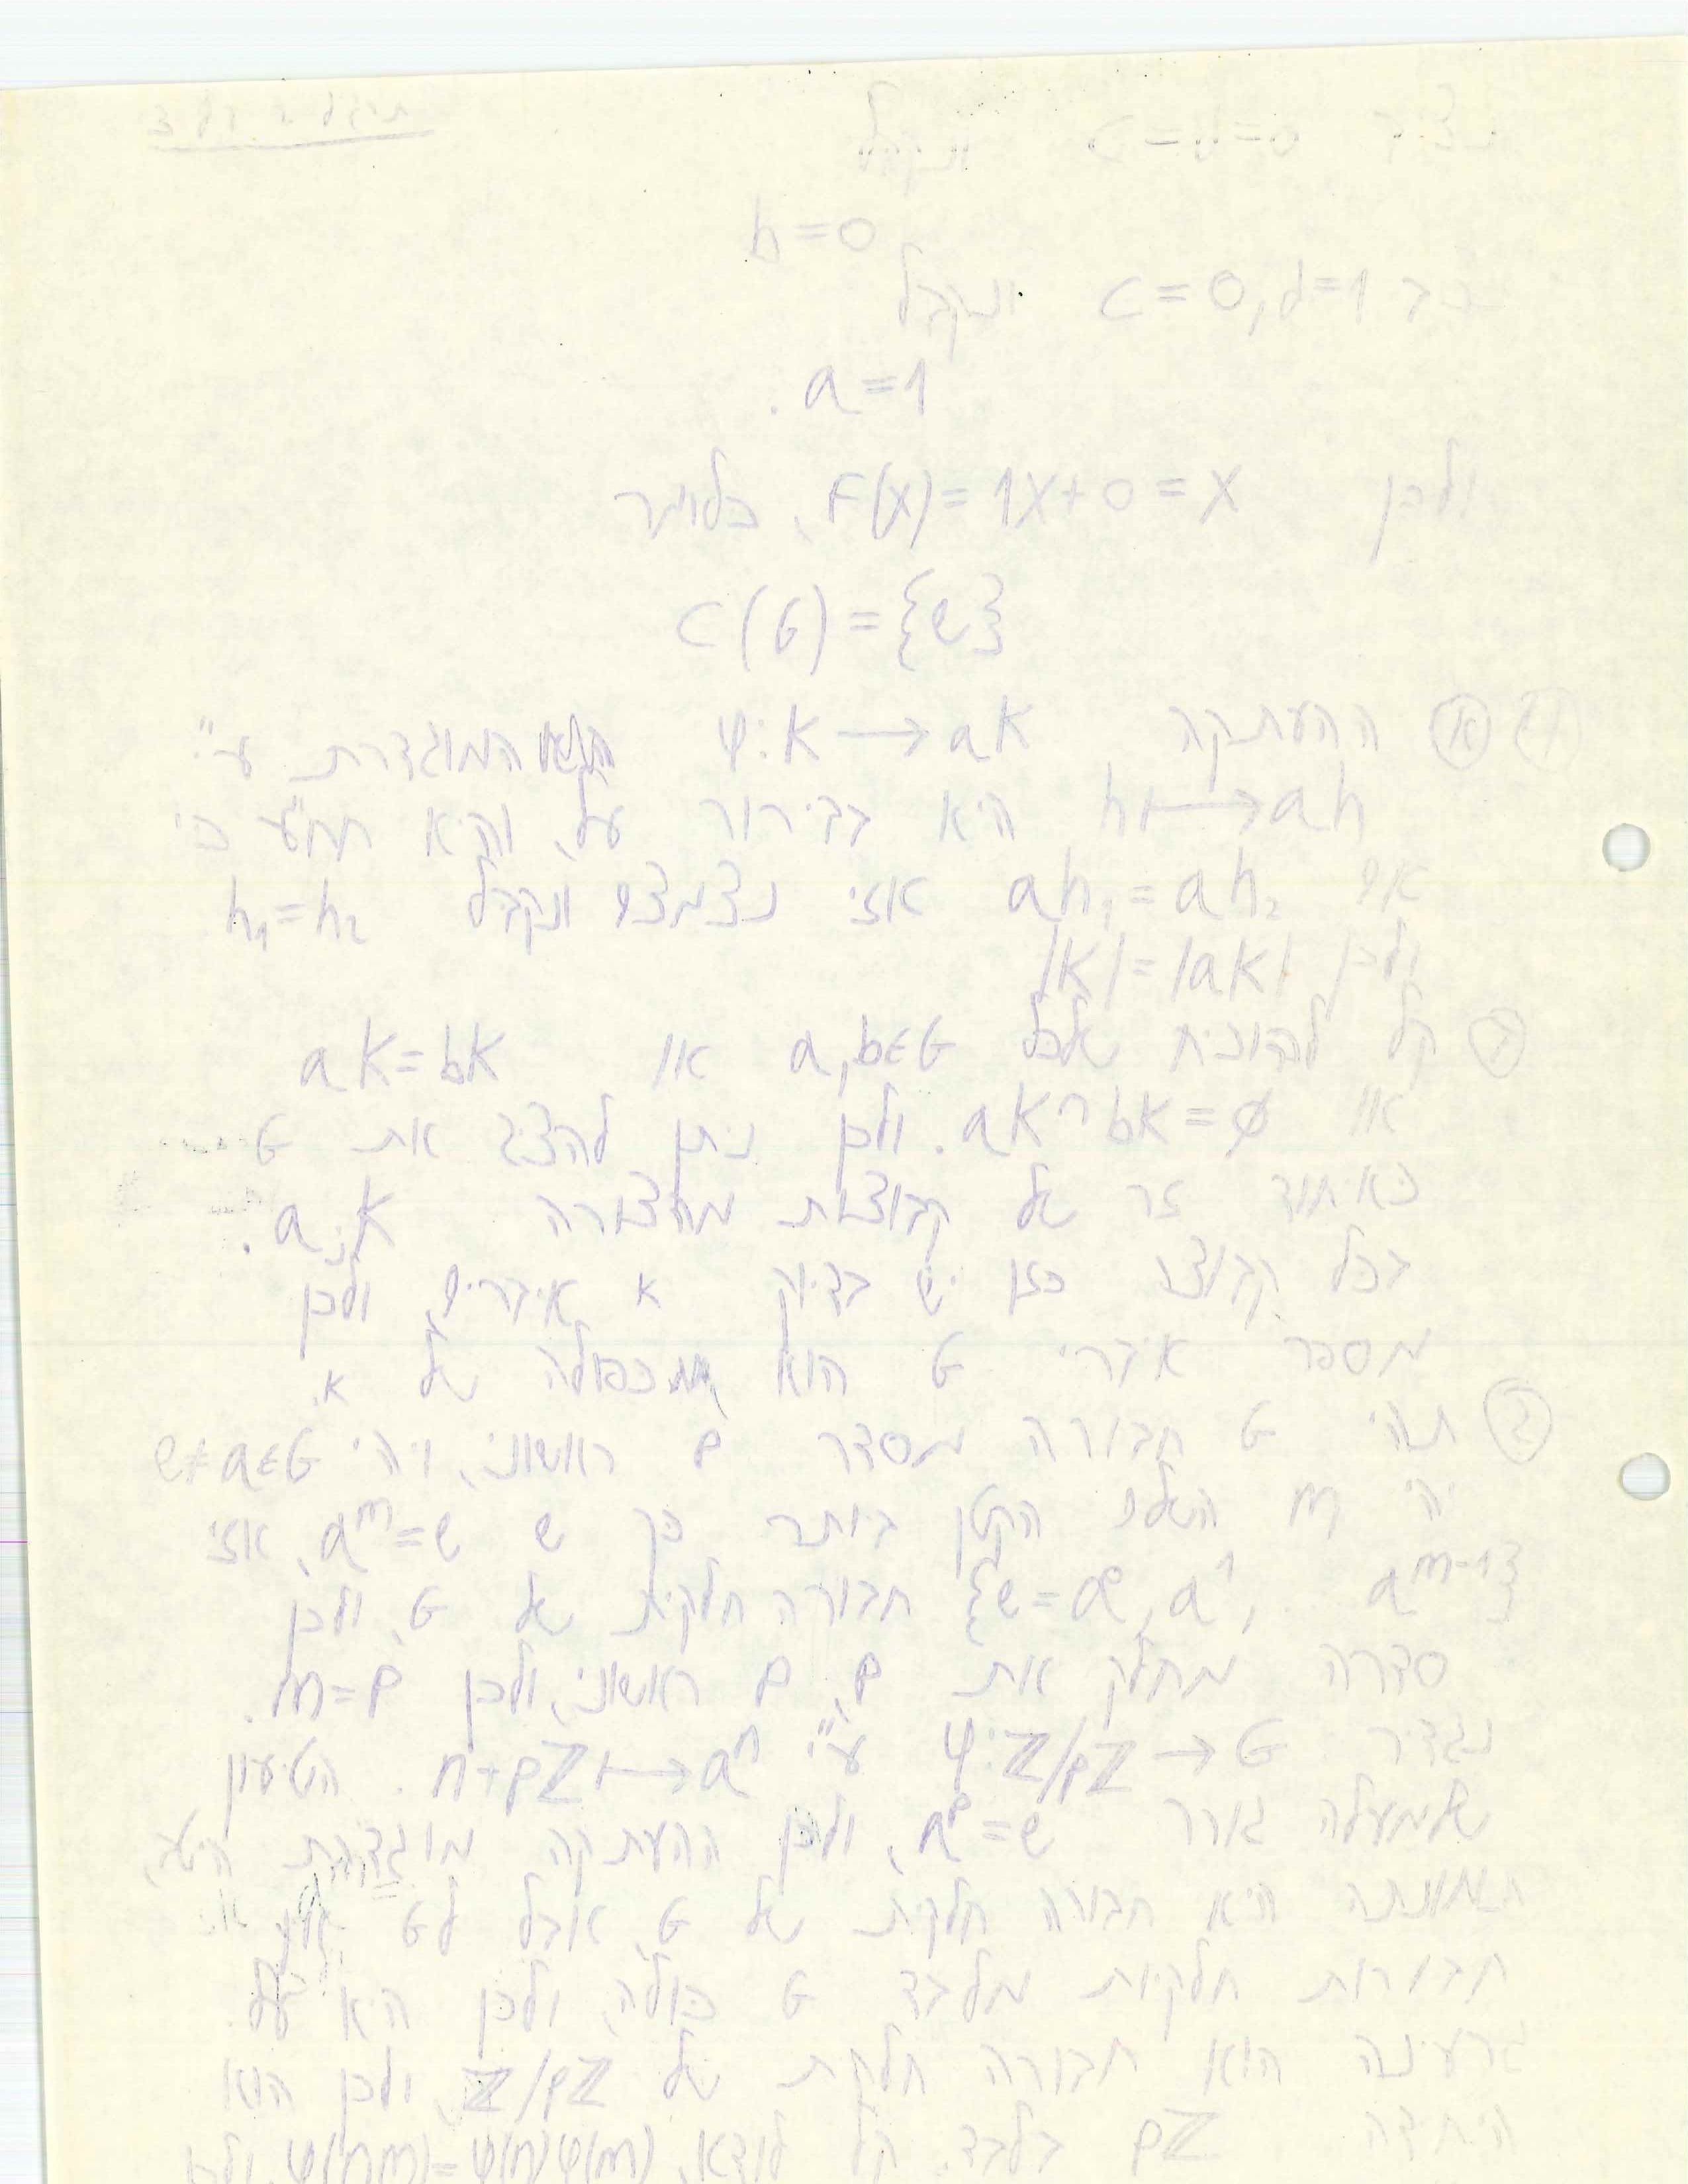 תרגיל 2 דף 3
נציב c=d=0 ונקבל
b=0
c=0, d=1 ונקבל
a=1.
ולכן F(x)=1x+0=x, כלומר
C(G)={e}
א ההעתקה φ:K→aK המוגדרת ע"י
h↦ah היא בבירור על, והיא חח"ע כי
אם ah₁=ah₂ אזי נצמצם ונקבל h₁=h₂
ולכן |K|=|aK|
ב קל להוכיח שלכל a,b∈G או aK=bK
או aK∩bK=∅. ולכן ניתן להציג את G
כאיחוד זר של קבוצות מהצורה aᵢK.
בכל קבוצה כזו יש בדיוק k איברים, ולכן
מספר איברי G הוא מכפולה של k.
ג תהי G חבורה מסדר p ראשוני, ויהי e≠a∈G
יהי m השלם הקטן ביותר כך ש aᵐ=e, אזי
{e=a⁰, a¹, aᵐ⁻¹} חבורה חלקית של G, ולכן
סדרה מחלק את p, p ראשוני, ולכן m=p.
נגדיר φ:ℤ/pℤ→G ע"י n+pℤ↦aⁿ. הטיעון
שלמעלה גורר aᵖ=e, ולכן ההעתקה מוגדרת היטב,
תמונתה היא חבורה חלקית של G, אבל לG אין
חבורות חלקיות מלבד G כולה, ולכן היא על.
גרעינה הוא חבורה חלקית של ℤ/pℤ, ולכן הוא
היחידה pℤ בלבד. קל לוודא φ(nm)=φ(n)φ(m), ולכן